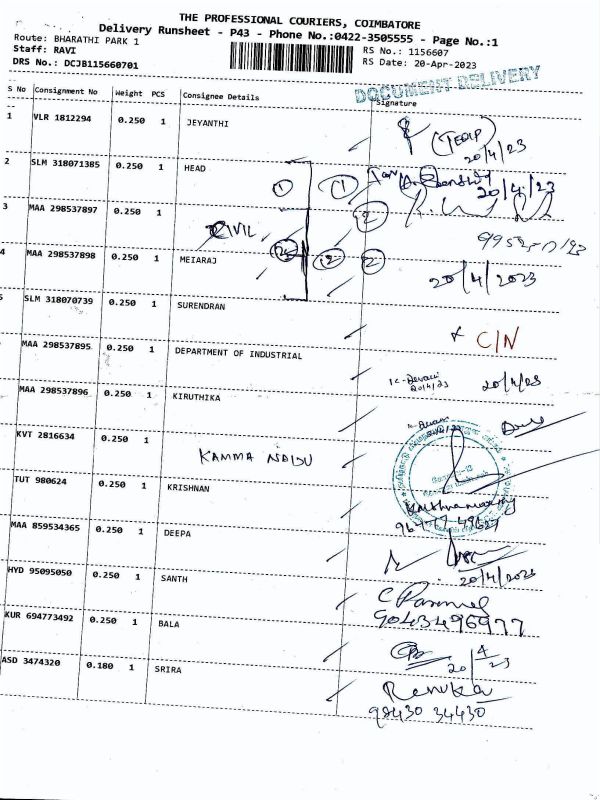 THE PROFESSIONAL COURIERS, COIMBATORE
Delivery Runsheet - P43 - Phone No.:0422-3505555 - Page No.:1
Route: BHARATHI PARK 1 RS No.: 1156607
Staff: RAVI RS Date: 20-Apr-2023
DRS No.: DCJB115660701
DOCUMENT DELIVERY
S No Consignment No Weight PCS Consignee Details Signature
1 VLR 1812294 0.250 1 JEYANTHI
20/4/23
2 SLM 318071385 0.250 1 HEAD 1 1
20/4/23
3 MAA 298537897 0.250 1 CIVIL 2
4 MAA 298537898 0.250 1 MEIARAJ 2 2 2
20/4/2023
5 SLM 318070739 0.250 1 SURENDRAN
C/N
MAA 298537895 0.250 1 DEPARTMENT OF INDUSTRIAL
20/4/23 20/4/23
MAA 298537896 0.250 1 KIRUTHIKA
KVT 2816634 0.250 1 KAMMA NAIDU
TUT 980624 0.250 1 KRISHNAN
Krishnamoorthy
MAA 859534365 0.250 1 DEEPA
20/4/2023
HYD 95095050 0.250 1 SANTH
9043496977
KUR 694773492 0.250 1 BALA
20/4/23
ASD 3474320 0.180 1 SRIRA
Renuka
98430 34430